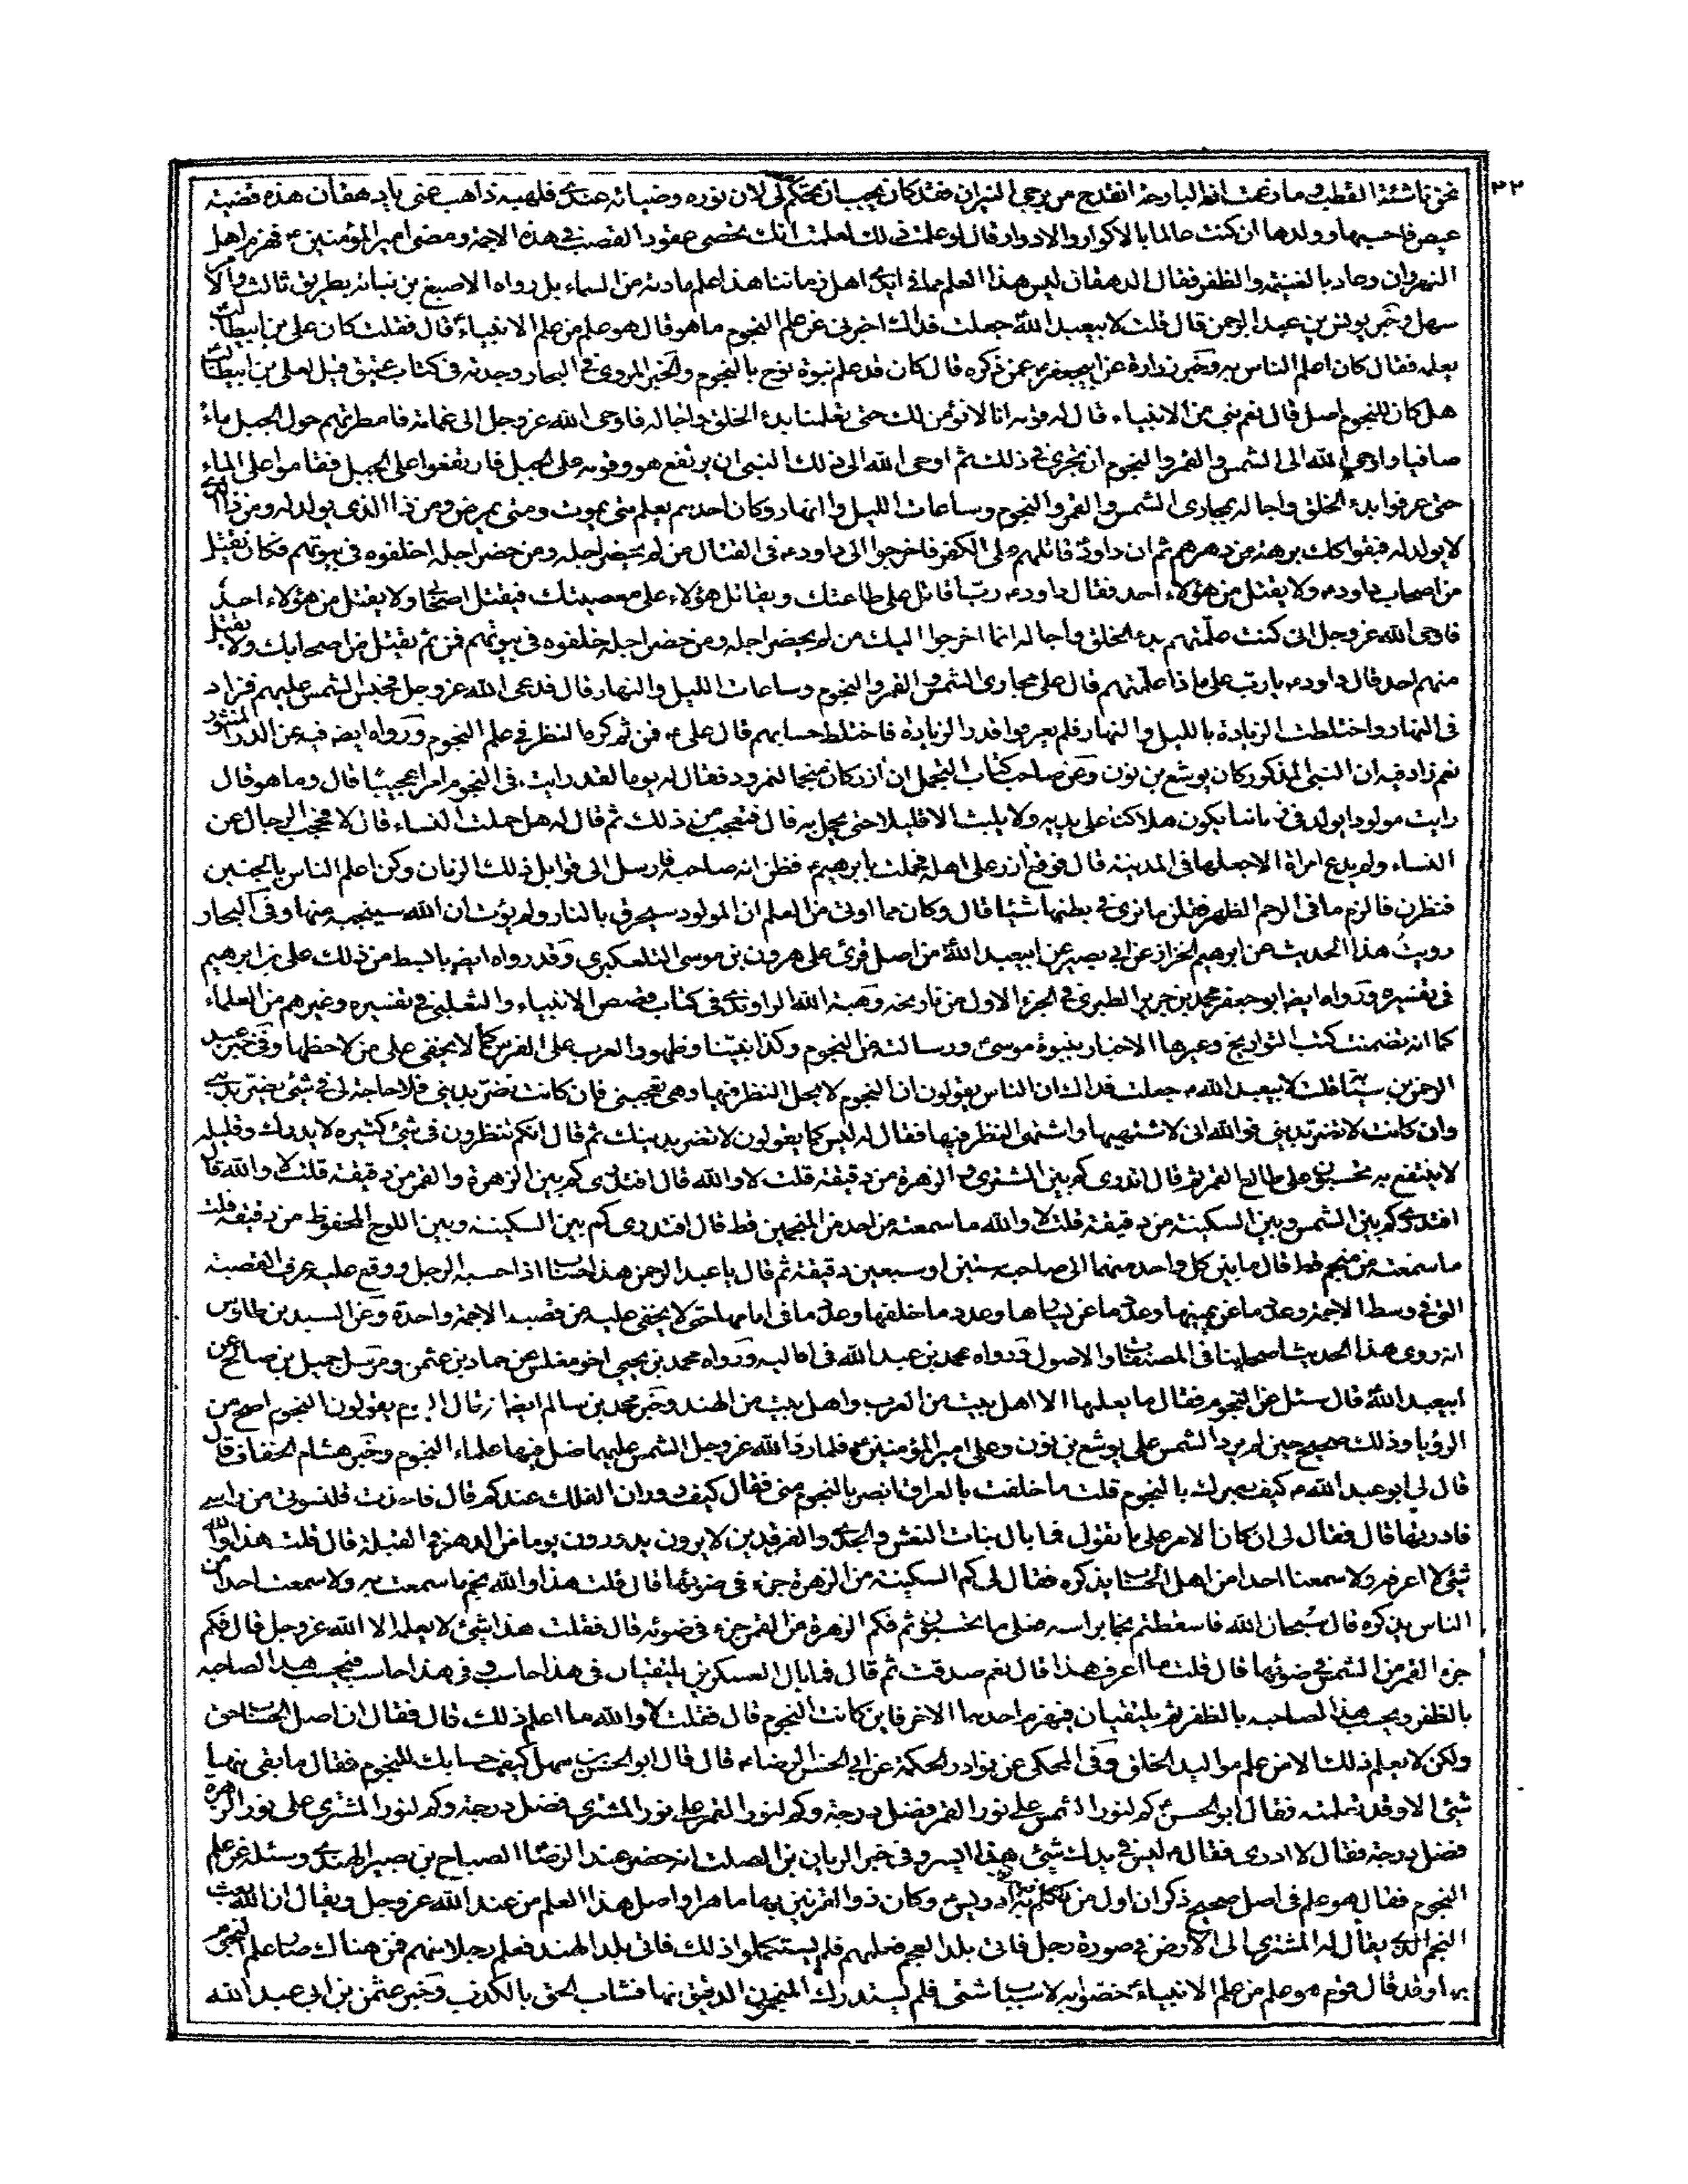 ٢٢
نحن ناشئة القطب وما زعمت انه البارحة انقدح من برجي النيران فقد كان يجب ان تحكم لي لان نوره وضيائه عندي فلهبه ذاهب عني يا دهقان هذه قضية
عيص فاحسبها وولدها ان كنت عالما بالاكوار والادوار قال لو علمت ذلك لعلمت انك تحصى عقود القصب في هذه الاجمة ومضى امير المؤمنين ع فهزم اهل
النهروان وعاد بالغنيمة والظفر فقال الدهقان ليس هذا العلم مما في ايدي اهل زماننا هذا علم مادته من السماء بل رواه الاصبغ بن نباتة بطريق ثالث
سهل وخبر يونس بن عبد الرحمن قال قلت لابيعبد اللهؑ جعلت فداك اخبرني عن علم النجوم ما هو قال هو علم من علم الانبياء قال فقلت كان علي بن ابيطالب
يعلمه فقال كان اعلم الناس به وخبر زرارة عن ابيجعفر ع عمن ذكره قال كان قد علم نبوة نوح بالنجوم والخبر المروي في البحار وجدته في كتاب عتيق قيل لعلي بن ابيطالب
هل كان للنجوم اصل قال نعم نبي من الانبياء قال له قومه انا لا نؤمن لك حتى تعلمنا بدء الخلق واجاله فاوحى الله عز وجل الى غمامة فامطرتهم حول الجبل ماء
صافيا واوحى الله الى الشمس والقمر والنجوم ان تجري في ذلك ثم اوحى الله الى ذلك النبي ان يرتفع هو وقومه على الجبل فارتفعوا على الجبل فقاموا على الماء
حتى عرفوا بدء الخلق واجاله بمجاري الشمس والقمر والنجوم وساعات الليل والنهار وكان احدهم يعلم متى يموت ومتى يمرض ومن ذا الذي يولد له ومن ذا الذي
لا يولد له فبقوا كك برهة من دهرهم ثم ان داود ع قاتلهم على الكفر فاخرجوا الى داود ع في القتال من لم يحضر اجله ومن حضر اجله اخلفوه في بيوتهم فكان يقتل
من اصحاب داود ع ولا يقتل من هؤلاء احد فقال داود ع رب اقاتل على طاعتك ويقاتل هؤلاء على معصيتك فيقتل اصحابي ولا يقتل من هؤلاء احد
فاوحى الله عز وجل اني كنت علمتهم بدء الخلق واجاله انما اخرجوا اليك من لم يحضر اجله ومن حضر اجله خلفوه في بيوتهم فمن ثم يقتل من اصحابك ولا يقتل
منهم احد قال داود ع يا رب على ماذا علمتهم قال على مجاري الشمس والقمر والنجوم وساعات الليل والنهار قال فدعى الله عز وجل فحبس الشمس عليهم فزاد
في النهار واختلطت الزيادة بالليل والنهار فلم يعرفوا قدر الزيادة فاختلط حسابهم قال علي ع فمن ثم كره النظر في علم النجوم ورواه ايضا فيه عن الدر المنثور
نعم زاد فيه ان النبي المذكور كان يوشع بن نون وعن صاحب كتاب التجمل ان ازر كان منجما لنمرود فقال له يوما لقد رايت في النجوم امرا عجيبا قال وما هو قال
رايت مولودا يولد في زماننا يكون هلاكنا على يديه ولا يلبث الا قليلا حتى يحمل به قال فتعجب من ذلك ثم قال له هل حملت النساء قال لا فحجب الرجال عن
النساء ولم يدع امراة الا جعلها في المدينة قال فوقع ازر على اهله فحملت بابرهيم ع فظن انه صاحبه فارسل الى قوابل ذلك الزمان وكن اعلم الناس بالجنين
فنظرن فالزم ما في الرحم الظهر فقلن ما نرى في بطنها شيئا قال وكان مما اوتي من العلم ان المولود سيحرق بالنار ولم يؤت ان الله سينجيه منها وفي البحار
رويت هذا الحديث عن ابرهيم الخزاز عن ابي بصير عن ابيعبد اللهؑ من اصل قرئ على هرون بن موسى التلعكبري وقد رواه ايضا بابسط من ذلك علي بن ابرهيم
في تفسيره ورواه ايضا ابو جعفر محمد بن جرير الطبري في الجزء الاول من تاريخه وهبة الله الراوندي في كتاب قصص الانبياء والثعلبي في تفسيره وغيرهم من العلماء
كما انه تضمنت كتب التواريخ وغيرها الاخبار بنبوة موسى ع ورسالته من النجوم وكذا نبينا وظهور العرب على الفرس كما لا يخفى على من لاحظها وفي خبر عبد
الرحمن بن سيابة قلت لابيعبد الله ع جعلت فداك ان الناس يقولون ان النجوم لا يحل النظر فيها وهي تعجبني فان كانت تضر بديني فلا حاجة لي في شيئ يضر بديني
وان كانت لا تضر بديني فوالله اني لاشتهيها واشتهي النظر فيها فقال له ليس كما يقولون لا تضر بدينك ثم قال انكم تنظرون في شيئ كثيره لا يدرك وقليله
لا ينتفع به تحسبون على طالع القمر ثم قال اتدري كم بين المشتري والزهرة من دقيقة قلت لا والله قال افتدري كم بين الزهرة والقمر من دقيقة قلت لا والله قال
افتدري كم بين الشمس وبين السكينة من دقيقة قلت لا والله ما سمعته من احد من المنجمين قط قال افتدري كم بين السكينة وبين اللوح المحفوظ من دقيقة قلت
ما سمعته من منجم قط قال ما بين كل واحد منهما الى صاحبه ستين او سبعين دقيقة ثم قال يا عبد الرحمن هذا حساب اذا حسبه الرجل ووقع عليه عرف القصبة
التي في وسط الاجمة وعدد ما عن يمينها وعدد ما عن يسارها وعدد ما خلفها وعدد ما في امامها حتى لا يخفى عليه من قصب الاجمة واحدة وعن السيد بن طاوس
انه روى هذا الحديث اصحابنا في المصنفات والاصول ورواه محمد بن عبد الله في اماليه ورواه محمد بن يحيى اخو مغلس عن حماد بن عثمن ومرسل جميل بن صالح عن
ابيعبد اللهؑ قال سئل عن النجوم فقال ما يعلمها الا اهل بيت من العرب واهل بيت من الهند وخبر محمد بن سالم ايضا قال قوم يقولون النجوم اصح من
الرؤيا وذلك صحيح حين لم يرد الشمس على يوشع بن نون وعلى امير المؤمنين ع فلما رد الله عز وجل الشمس عليهما ضل فيها علماء النجوم وخبر هشام الخفاف قال
قال لي ابو عبد الله ع كيف بصرك بالنجوم قلت ما خلفت بالعراق ابصر بالنجوم مني فقال كيف دوران الفلك عندكم قال فاخذت قلنسوتي من راسي
فادرتها قال فقال لي ان كان الامر على ما تقول فما بال بنات النعش والجدي والفرقدين لا يرون يدورون يوما من الدهر في القبلة قال قلت هذا والله
شيئ لا اعرفه ولا سمعنا احدا من اهل الحساب يذكره فقال لي كم السكينة من الزهرة جزء في ضوئها قال قلت هذا والله نجم ما سمعت به ولا سمعت احدا من
الناس يذكره قال سبحان الله فاسقطتم نجما براسه فعلى ما تحسبون ثم فكم الزهرة من القمر جزء في ضوئه قال فقلت هذا شيئ لا يعلمه الا الله عز وجل قال فكم
جزء القمر من الشمس في ضوئها قال قلت ما اعرف هذا قال نعم صدقت ثم قال فما بال العسكرين يلتقيان في هذا حاسب وفي هذا حاسب فيحسب هذا لصاحبه
بالظفر ويحسب هذا لصاحبه بالظفر ثم يلتقيان فيهزم احدهما الاخر فاين كانت النجوم قال فقلت لا والله ما اعلم ذلك قال فقال ان اصل الحساب حق
ولكن لا يعلم ذلك الا من علم مواليد الخلق وفي المحكي عن نوادر الحكمة عن ابي الحسن الرضا ع قال قال ابو الحسن ع سهل كيف حسابك للنجوم فقال ما بقي منها
شيئ الا وقد تعلمته فقال ابو الحسن ع كم لنور الشمس على نور القمر فضل درجة وكم لنور القمر على نور المشتري فضل درجة وكم لنور المشتري على نور الزهرة
فضل درجة فقال لا ادري فقال ع ليس في يدك شيئ هذا ايسره وفي خبر الريان بن الصلت انه حضر عند الرضا الصباح بن نصير الهندي وسئله عن علم
النجوم فقال هو علم في اصل صحيح ذكر ان اول من تكلم به ادريس ع وكان ذو القرنين بها ماهرا واصل هذا العلم من عند الله عز وجل ويقال ان الله بعث
النجم الذي يقال له المشتري الى الارض في صورة رجل فاتى بلد العجم فعلمهم فلم يستكملوا ذلك فاتى بلد الهند فعلم رجلا منهم فمن هناك صار علم النجوم
بها وقد قال قوم هو علم من علم الانبياء خصوا به لاسباب شتى فلم يستدرك المنجمون الدقيق منها فشاب الحق بالكذب وخبر عثمن بن ابي عبد الله